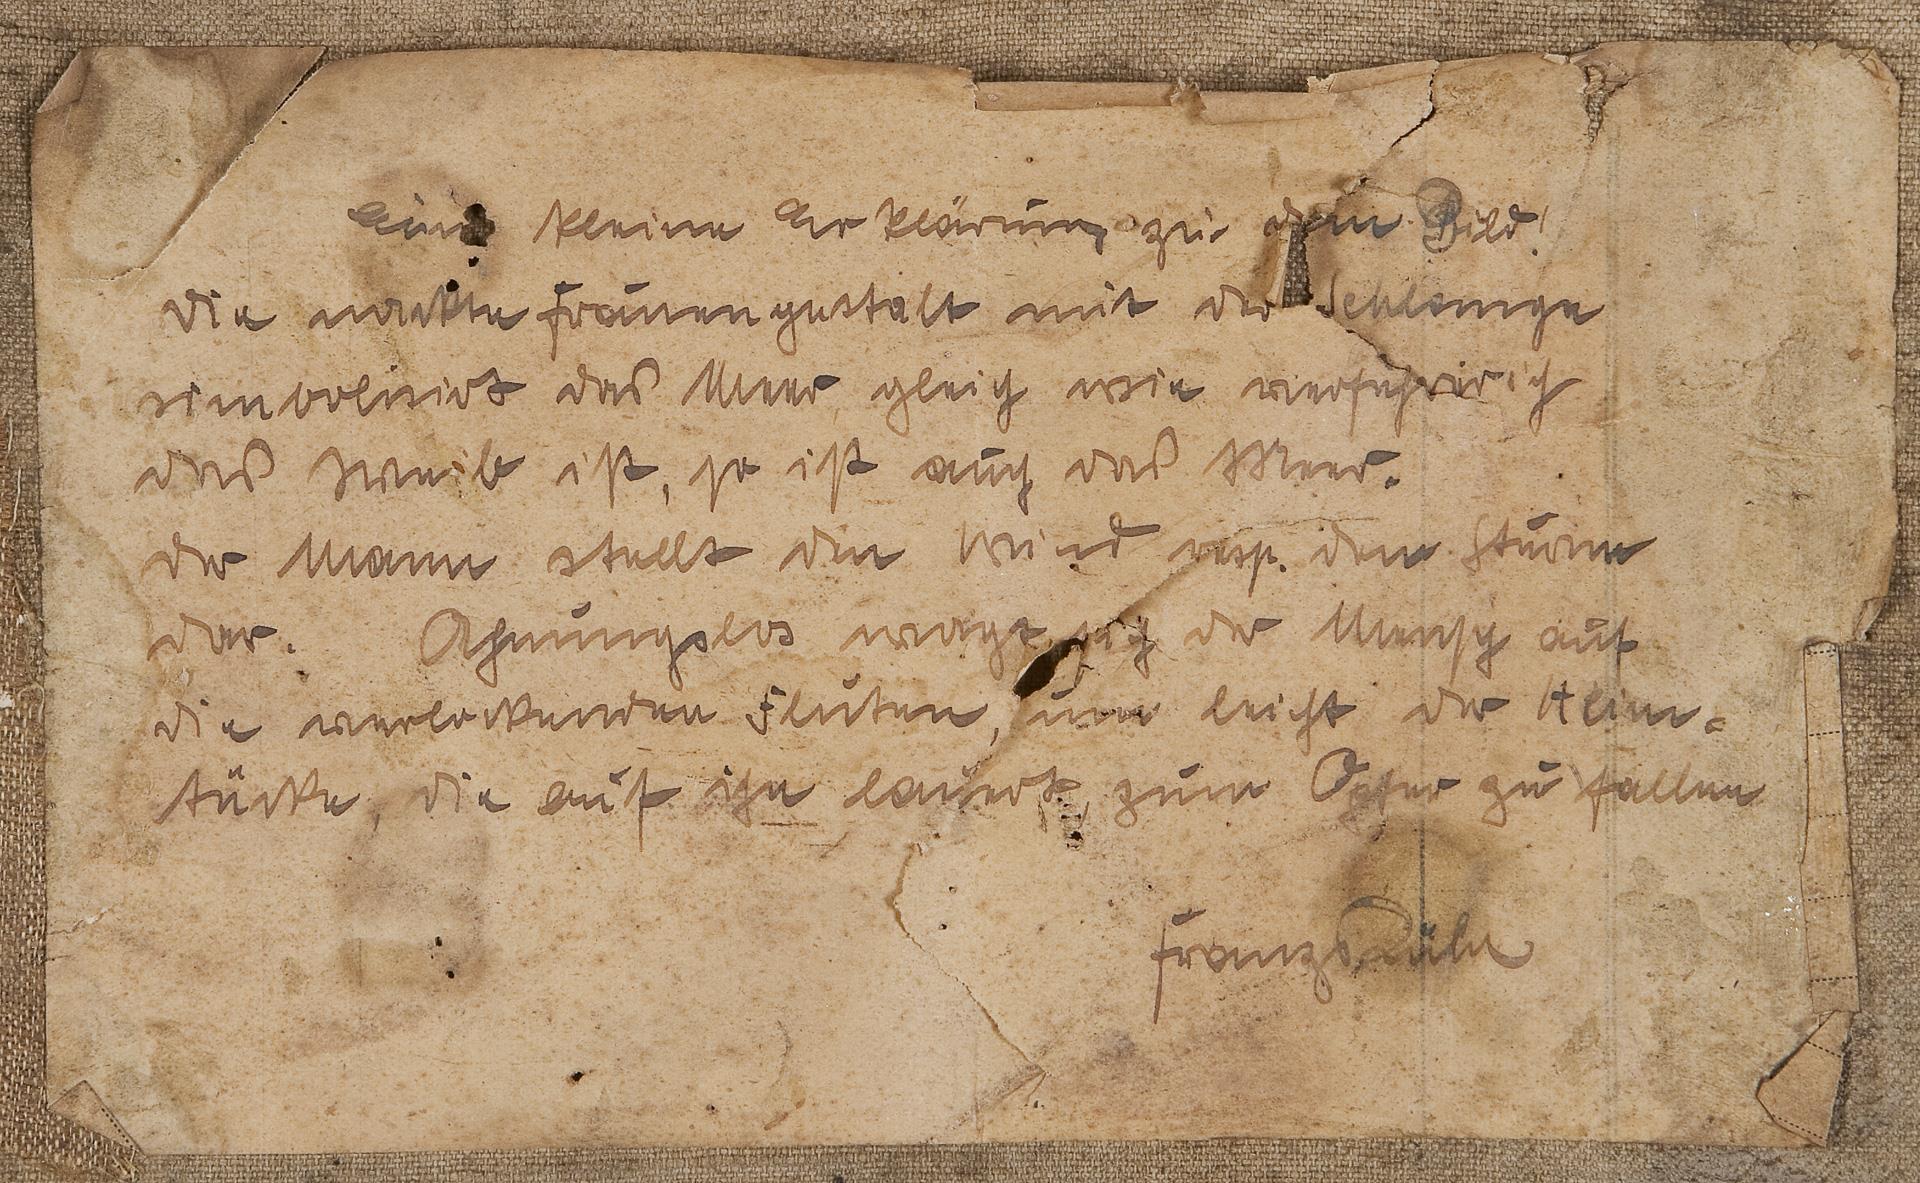 Eine kleine Erklärung zu dem Bild!
Die nackte Frauengestalt mit der Schlange
simbolisirt das Meer, gleich wie verführerich
das Weib ist, so ist auch das Meer.
Der Mann stellt den Wind resp. den Sturm
dar. Ahnungslos wagt sich der Mensch auf
die verlockenden Fluten, um leicht der Heim-
tücke, die auf ihn lauert, zum Opfer zu fallen
Franz